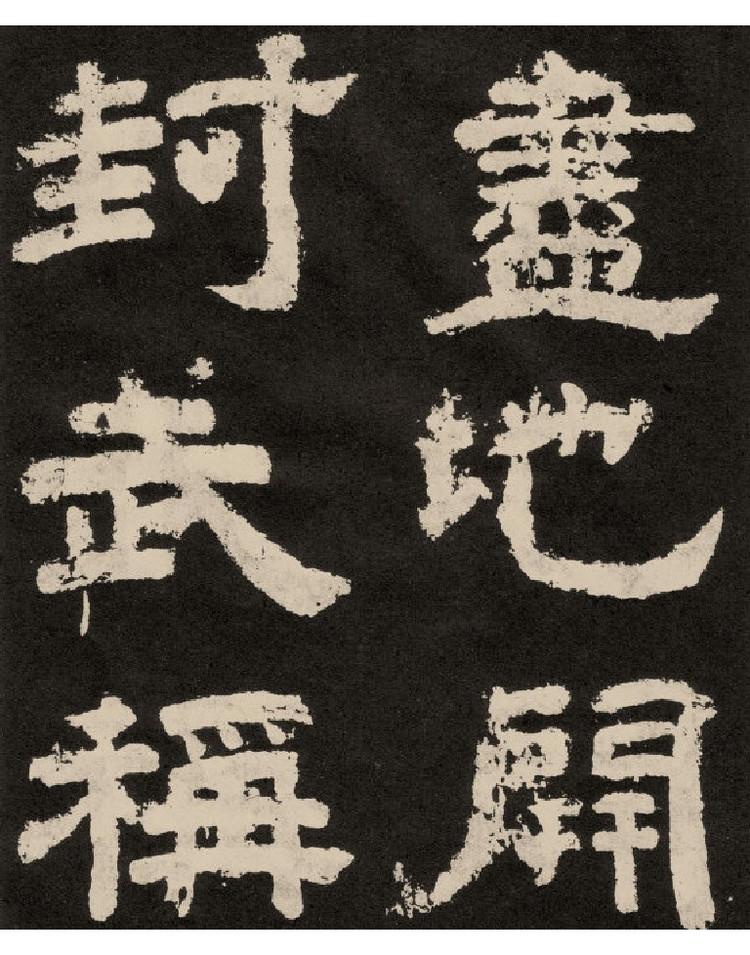 盡地開
封武稱